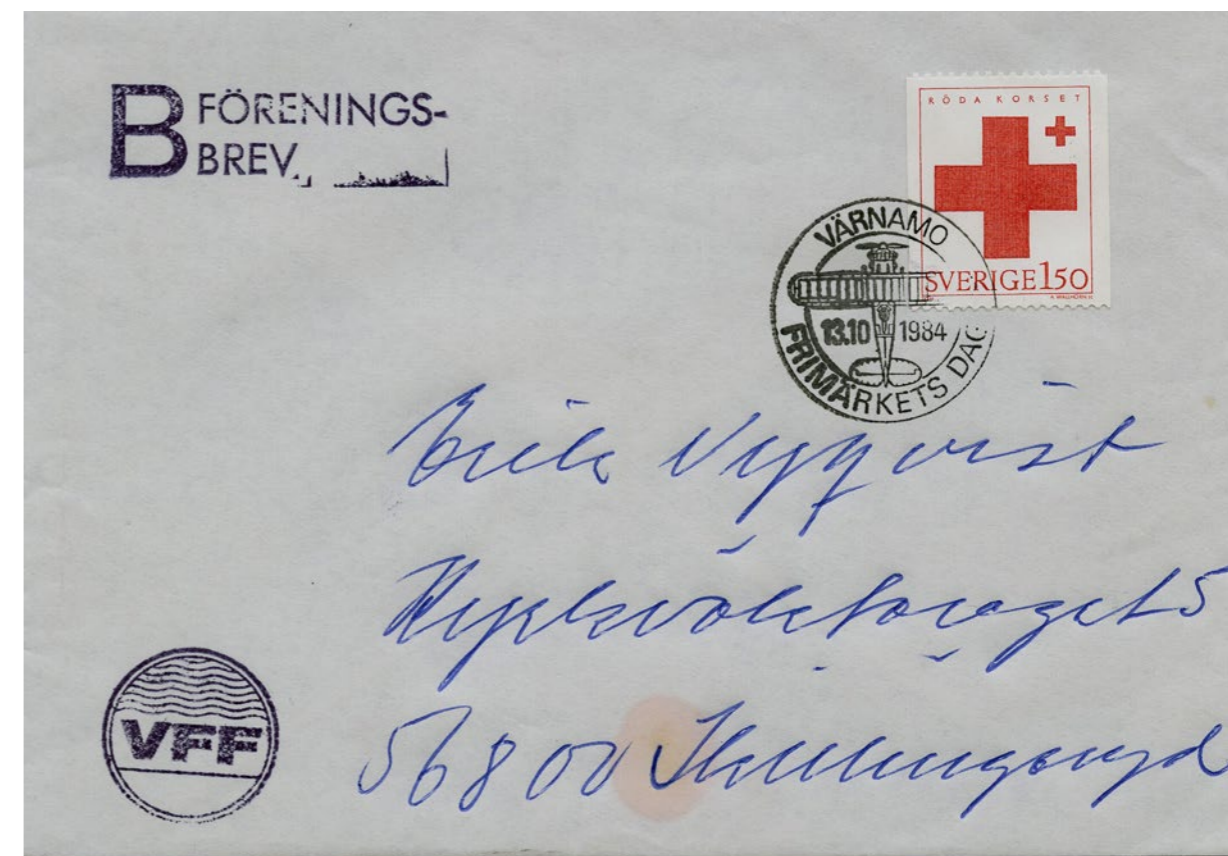 B FÖRENINGS-
BREV
RÖDA KORSET
SVERIGE 1.50
VÄRNAMO
13.10 1984
FRIMÄRKETS DAG
Erik
5
568 00 Skillingaryd
VFF